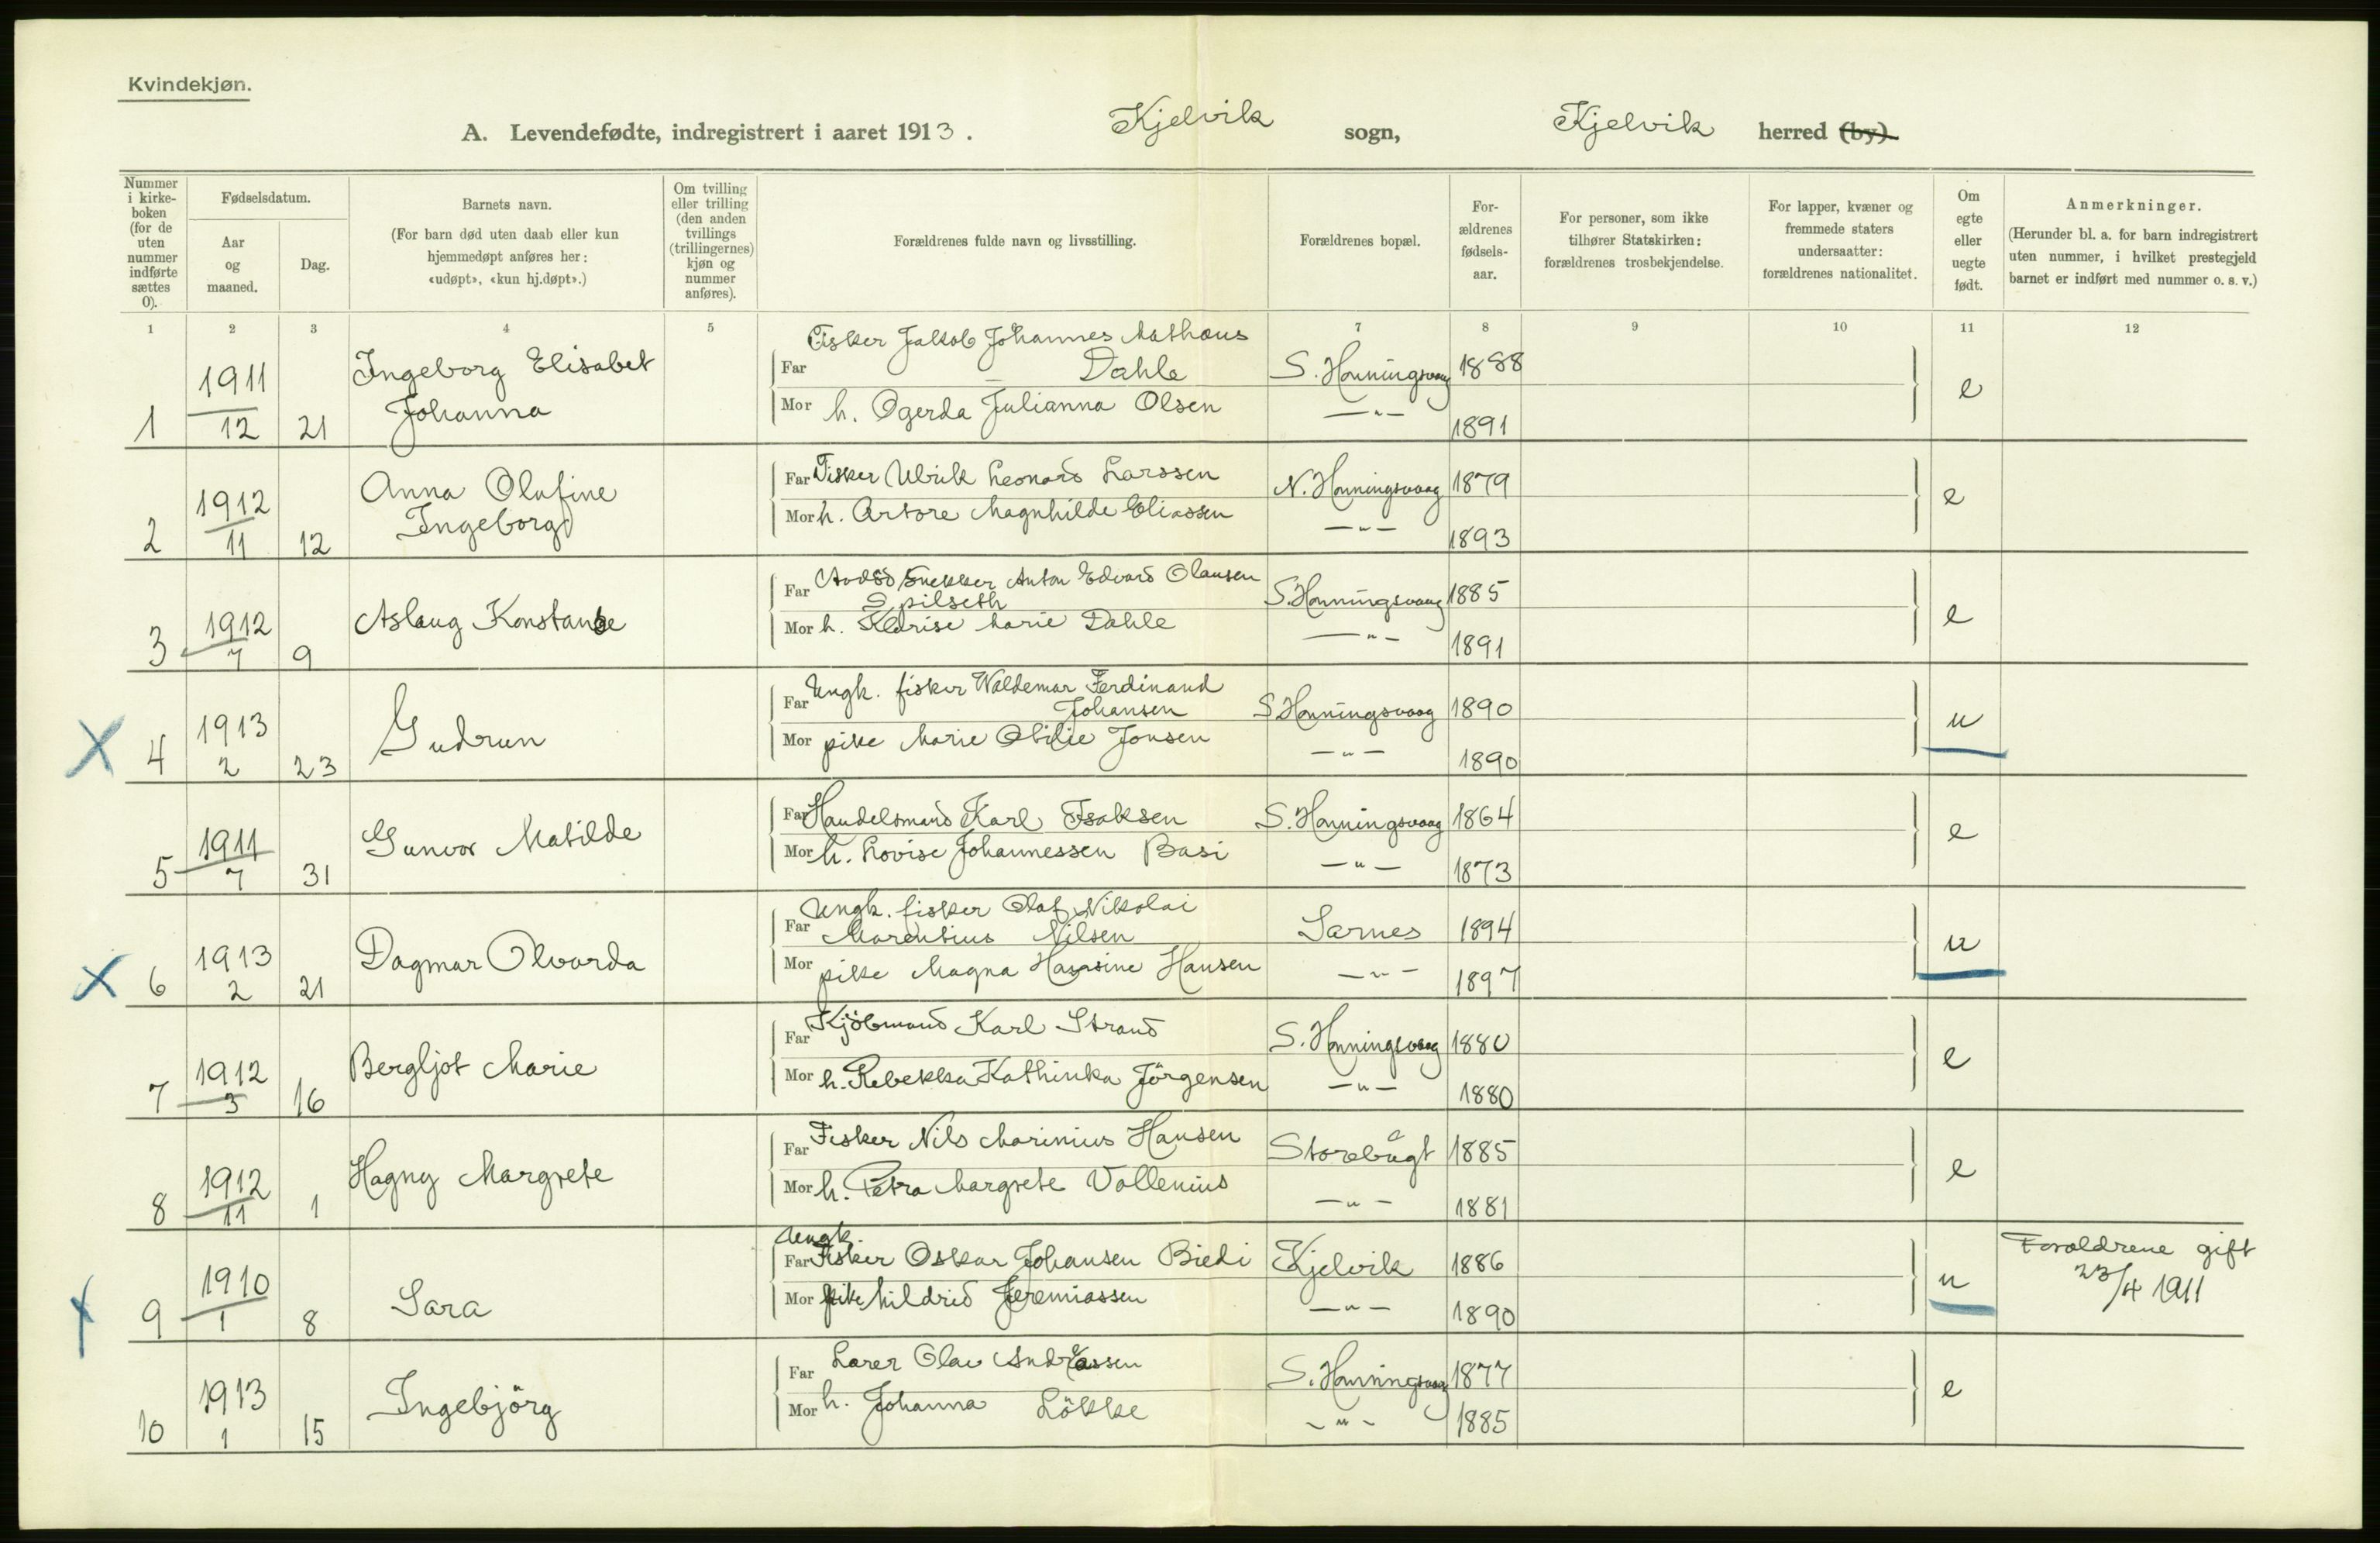 Kvindekjøn.
A. Levendefødte, indregistrert i aaret 1913. Kjelvik sogn, Kjelvik herred (by).
Nummer i kirkeboken (for de uten nummer indførte sættes 0).
Fødselsdatum.
Aar og maaned.
Dag.
Barnets navn.
(For barn død uten daab eller kun hjemmedøpt anføres her: «udøpt», «kun hj.døpt».)
Om tvilling eller trilling (den anden tvillings (trillingernes) kjøn og nummer anføres).
Forældrenes fulde navn og livsstilling.
Forældrenes bopæl.
Forældrenes fødselsaar.
For personer, som ikke tilhører Statskirken: forældrenes trosbekjendelse.
For lapper, kvæner og fremmede staters undersaatter: forældrenes nationalitet.
Om egte eller uegte født.
Anmerkninger.
(Herunder bl. a. for barn indregistrert uten nummer, i hvilket prestegjeld barnet er indført med nummer o. s. v.)
1 2 3 4 5 7 8 9 10 11 12
1 1911 12 21 Ingeborg Elisabet Johanna
Far Fisker Jakob Johannes Mathæus Dahle S. Honningsvaag 1888 e
Mor h. Ogerda Julianna Olsen —"— 1891
2 1912 11 12 Anna Olufine Ingeborg
Far Fisker Ulrik Leonard Larssen N. Honningsvaag 1879 e
Mor h. Magnhilde Eliassen —"— 1893
3 1912 7 9 Aslaug Konstanse
Far Snekker Anton Edvard Olausen Spilseth S. Honningsvaag 1885 e
Mor h. Marie Dahle —"— 1891
X 4 1913 2 23 Gudrun
Far Ungk. fisker Waldemar Ferdinand Johansen S. Honningsvaag 1890 u
Mor pike Marie Otilie Jonsen —"— 1890
5 1911 7 31 Gunvor Matilde
Far Handelsmand Karl Isaksen S. Honningsvaag 1864 e
Mor h. Lovise Johannessen Basi —"— 1873
X 6 1913 2 21 Dagmar Olvarda
Far Ungk. fisker Olaf Nikolai Marentius Nilsen Sarnes 1894 u
Mor pike Magna Hansen —"— 1897
7 1912 3 16 Bergljot Marie
Far Kjöbmand Karl Strand S. Honningsvaag 1880 e
Mor h. Rebekka Kathinka Jörgensen —"— 1880
8 1912 11 1 Hagny Margrete
Far Fisker Nils Marinius Hansen Storebugt 1885 e
Mor h. Petra Margrete Vollenius —"— 1881
X 9 1910 1 8 Sara
Far Ungk. Fisker Oskar Johansen Biedi Kjelvik 1886 u Forældrene gift 23/4 1911
Mor pike Mildrid Jeremiassen —"— 1890
10 1913 1 15 Ingebjörg
Far Lærer Olav Andreassen S. Honningsvaag 1877 e
Mor h. Johanna Lökke —"— 1885